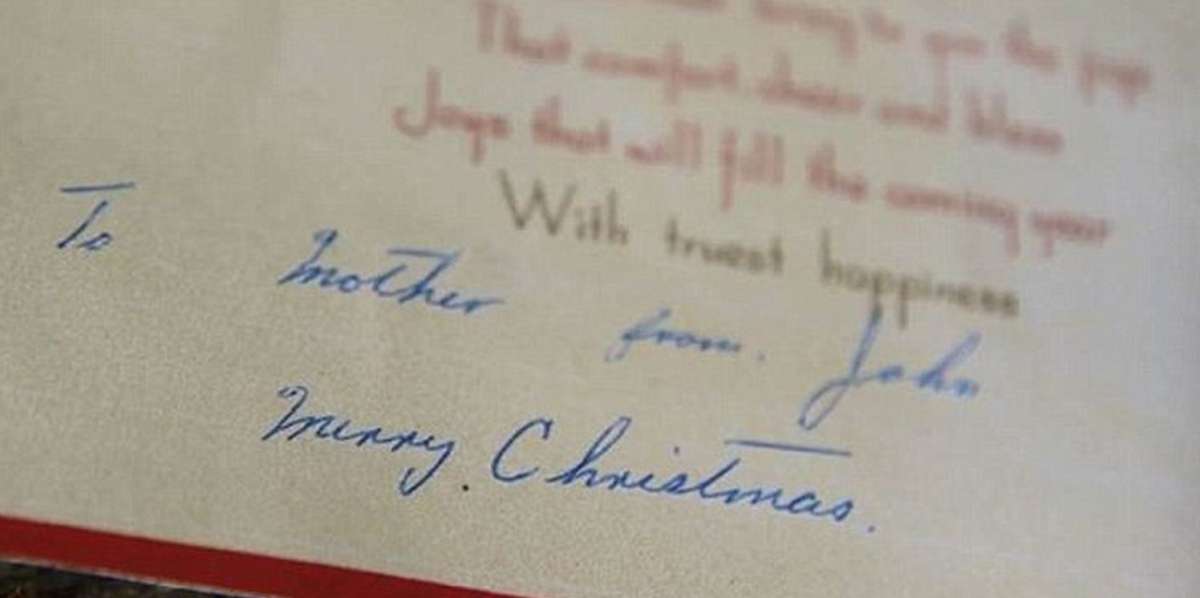 bring to you the joys
That comfort cheer and bless
Joys that will fill the coming year
With truest happiness
To Mother from. John
Merry. Christmas.